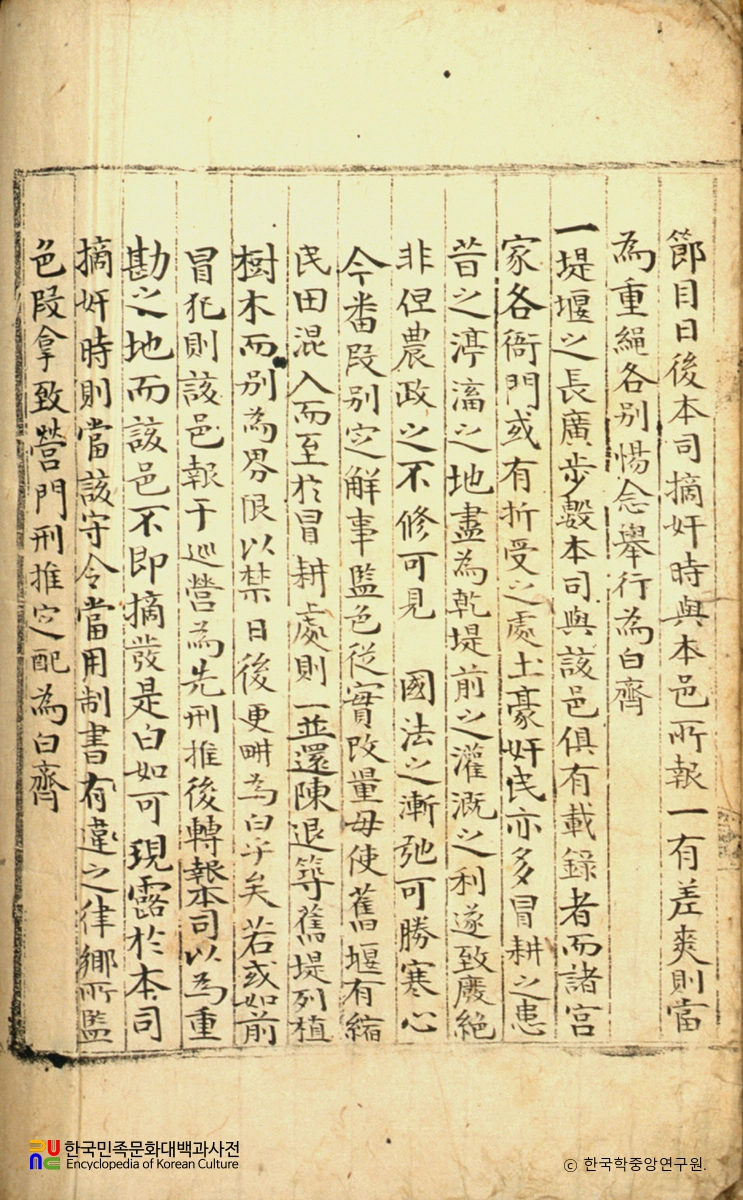 節目日後本司摘奸時與本邑所報一有差爽則當
為重繩各別惕念舉行為白齊
一堤堰之長廣步數本司與該邑俱有載錄者而諸宮
家各衙門或有折受之處土豪奸民亦多冒耕之患
昔之渟滀之地盡為乾堤前之灌漑之利遂致廢絶
非但農政之不修可見 國法之漸弛可勝寒心
今番段別定解事監色從實改量毋使舊堰有縮
民田混入而至於冒耕處則一並還陳退築舊堤列植
樹木而別為界限以禁日後更畊為白乎矣若或如前
冒犯則該邑報于巡營為先刑推後轉報本司以為重
勘之地而該邑不即摘發是白如可現露於本司
摘奸時則當該守令當用制書有違之律鄉所監
色段拿致營門刑推定配為白齊
한국민족문화대백과사전
Encyclopedia of Korean Culture
ⓒ 한국학중앙연구원.